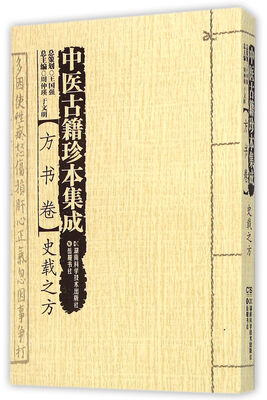 中医古籍珍本集成
总策划○王国强
总主编○周仲瑛 于文明
【方书卷】
史载之方
湖南科学技术出版社
岳麓书社
多因使性

怒傷損肝心正氣忽因事争打
中医古籍珍本集成
【方书卷】
史载之方